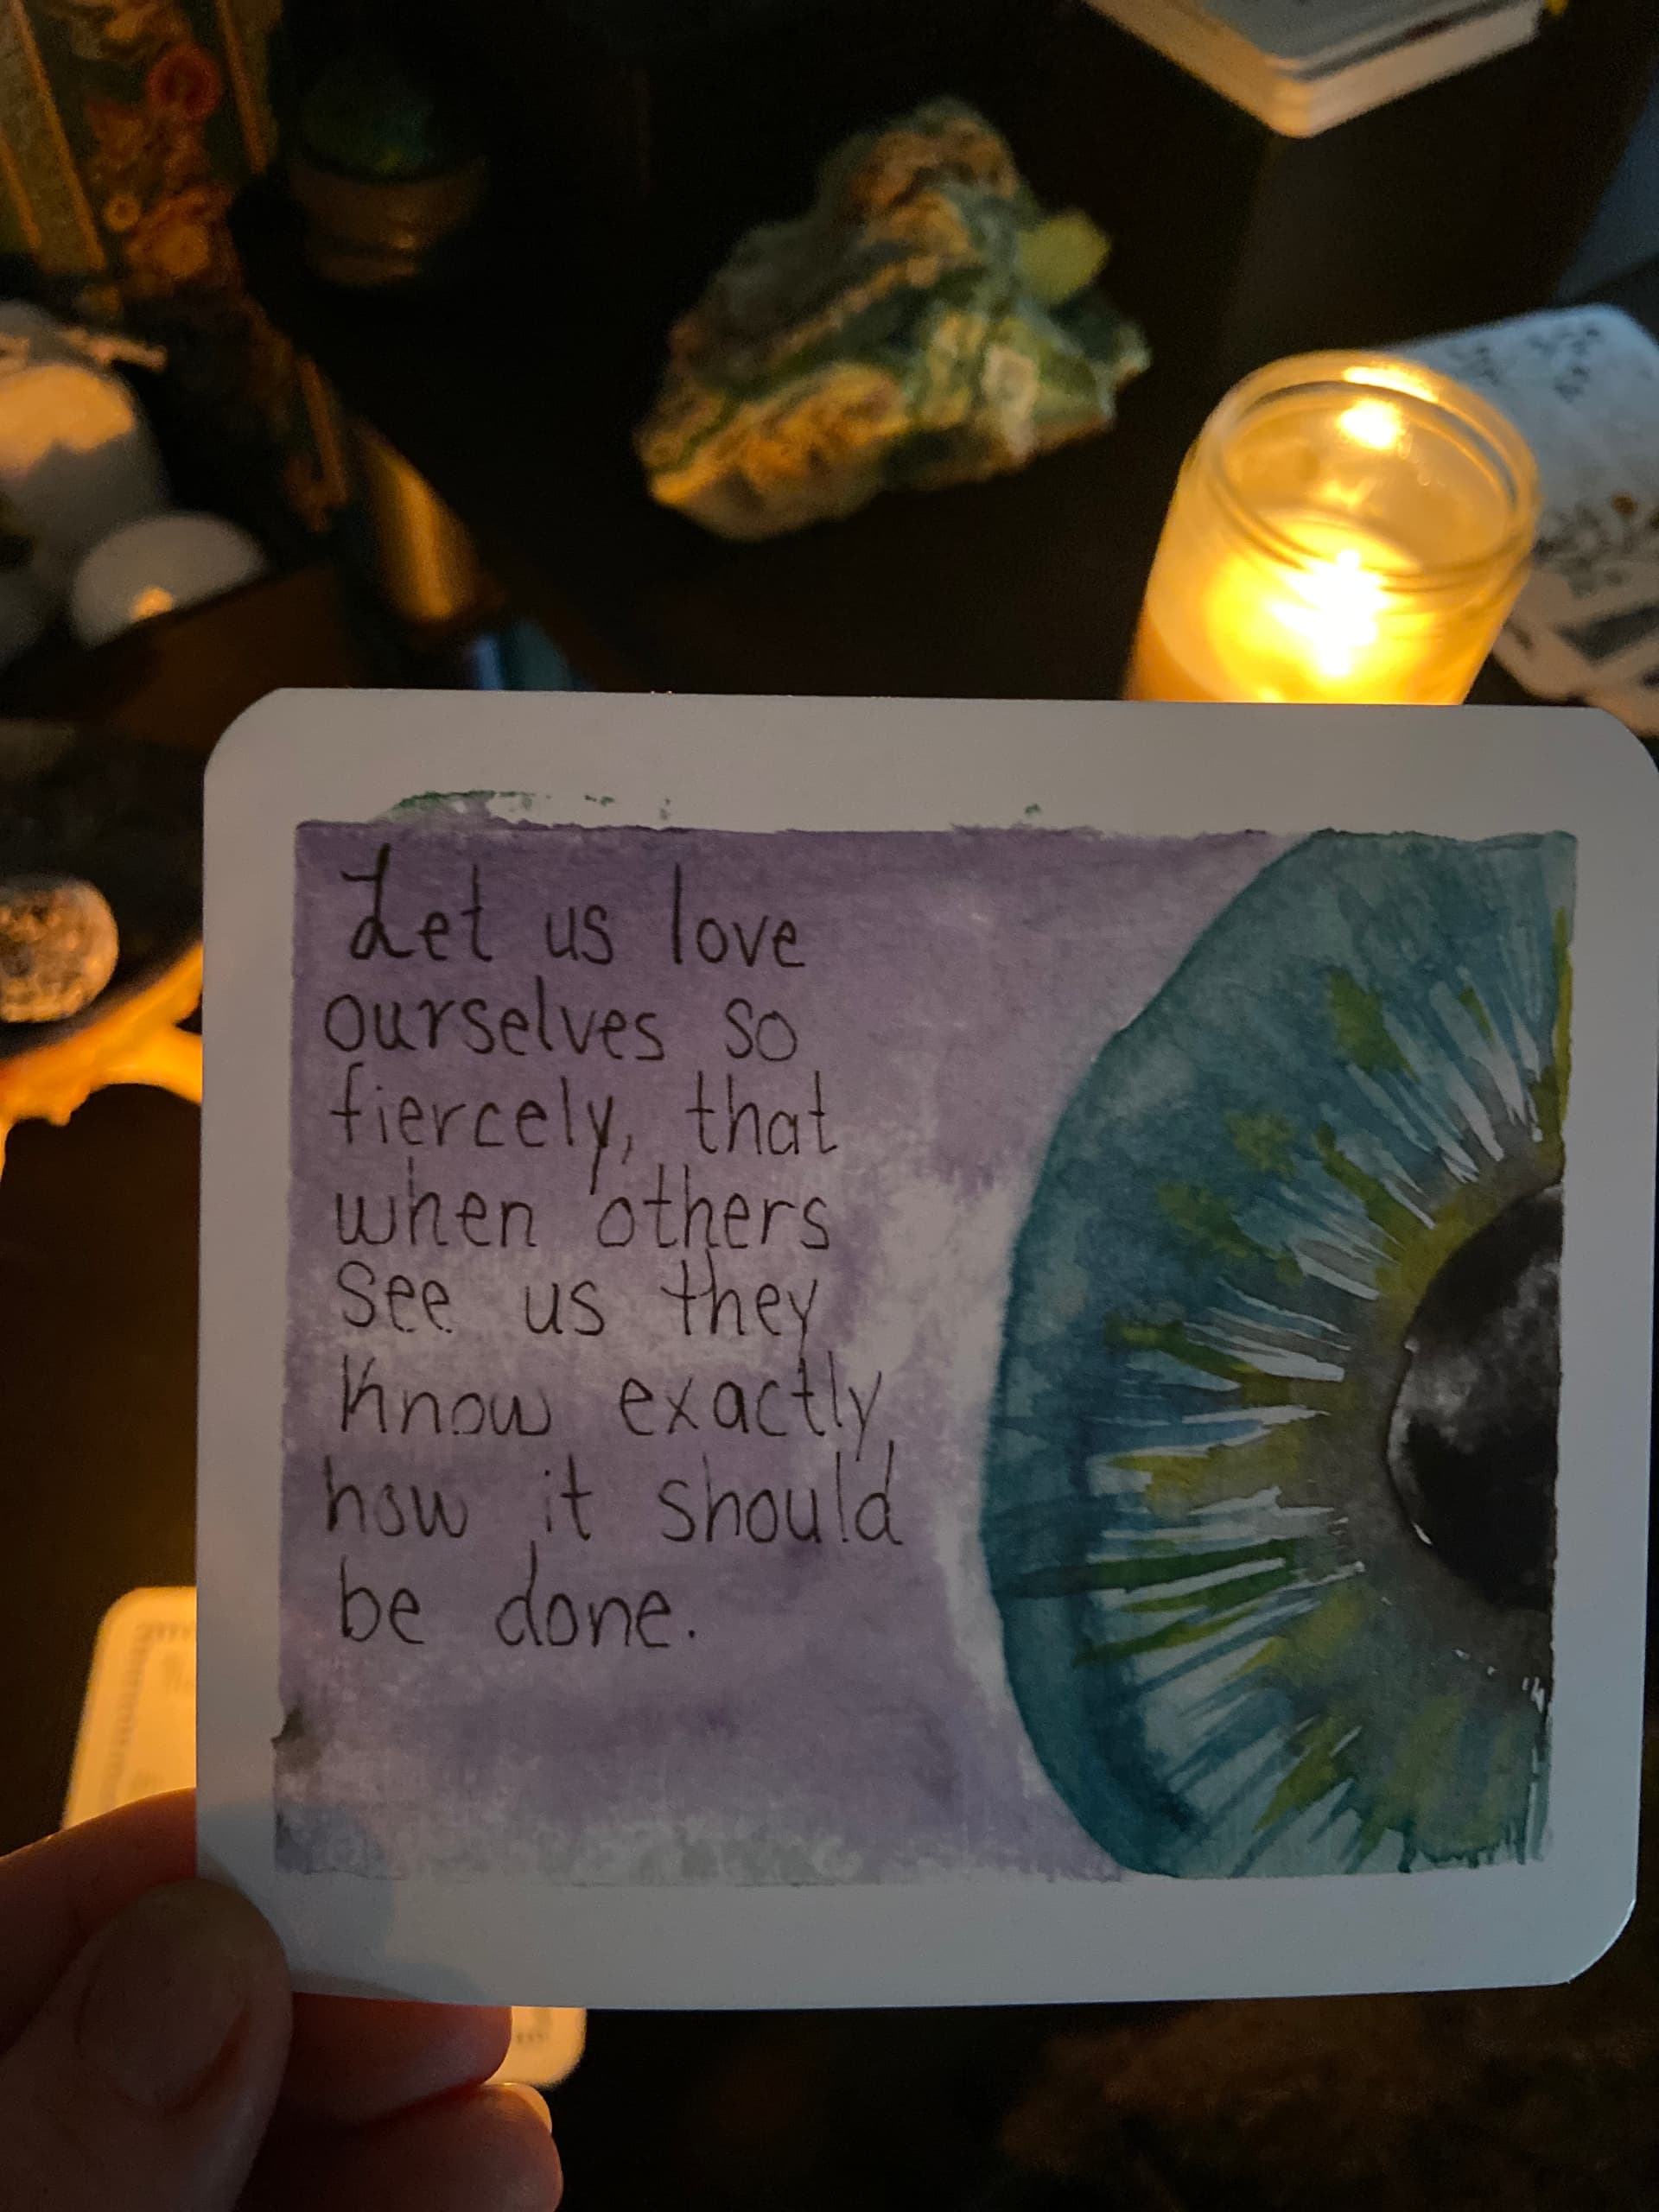 Let us love
ourselves so
fiercely, that
when others
see us they
know exactly
how it should
be done.